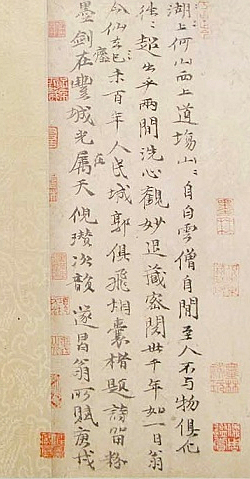 湖上何山西上道場山〻自白雲僧自閒至人不与物俱化
往〻超出乎兩間洗心觀妙退藏密閱世千年如一日翁
今仙去未百年人民城郭俱飛烟囊楮題詩留粉
墨劍在豐城光属天倪瓚次韻遂昌翁所賦庚戌